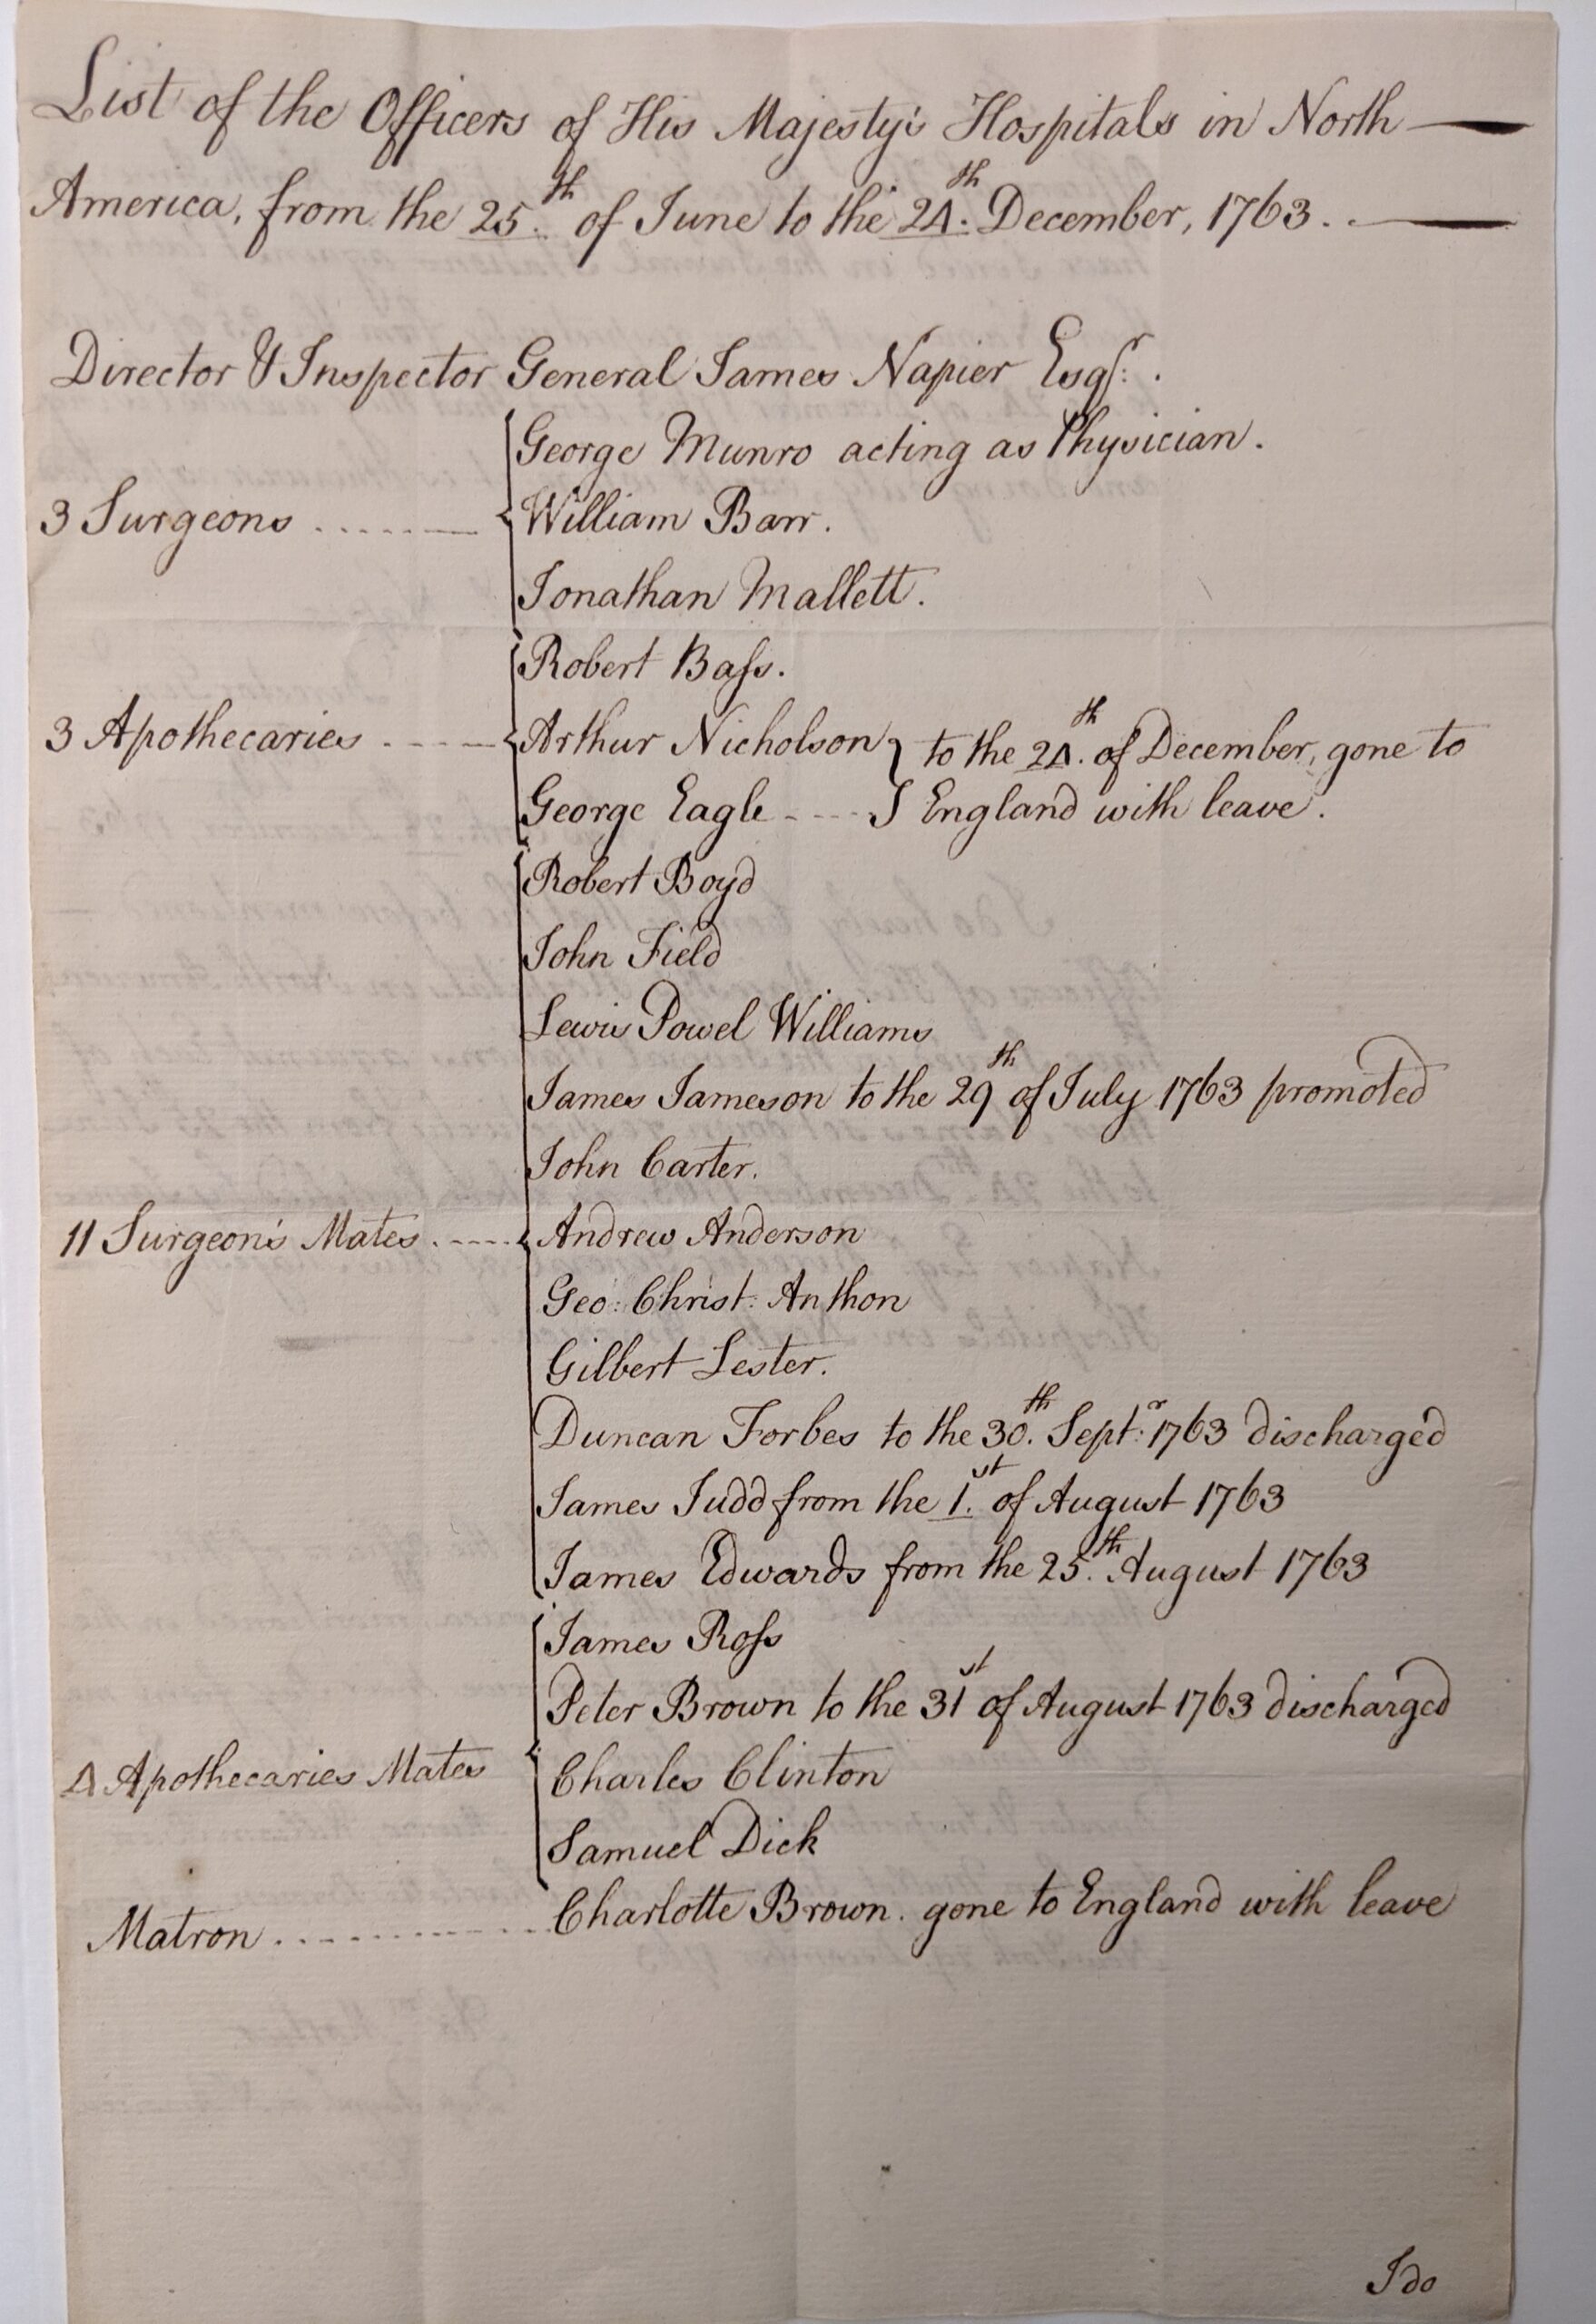 List of the Officers of His Majesty's Hospitals in North
America, from the 25.th of June to the 24.th December, 1763.
Director & Inspector General James Napier Esqr.
George Munro acting as Physician.
3 Surgeons William Barr.
Jonathan Mallett.
Robert Bass.
3 Apothecaries Arthur Nicholson } to the 24.th of December, gone to
George Eagle } England with leave.
Robert Boyd
John Field
Lewis Powel Williams
James Jameson to the 29th of July 1763 promoted
John Carter.
11 Surgeon's Mates Andrew Anderson
Geo: Christ: Anthon
Gilbert Lester.
Duncan Forbes to the 30.th Septr: 1763 discharged
James Judd from the 1.st of August 1763
James Edwards from the 25.th August 1763
James Ross
Peter Brown to the 31st of August 1763 discharged
4 Apothecaries Mates Charles Clinton
Samuel Dick
Matron Charlotte Brown. gone to England with leave
I do